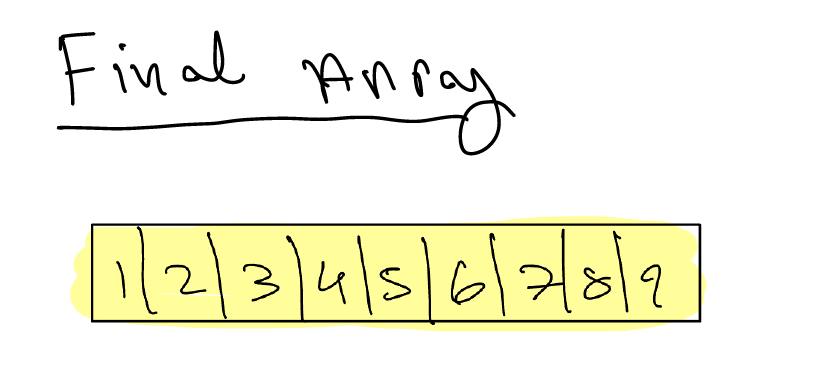 Final Array
1 2 3 4 5 6 7 8 9